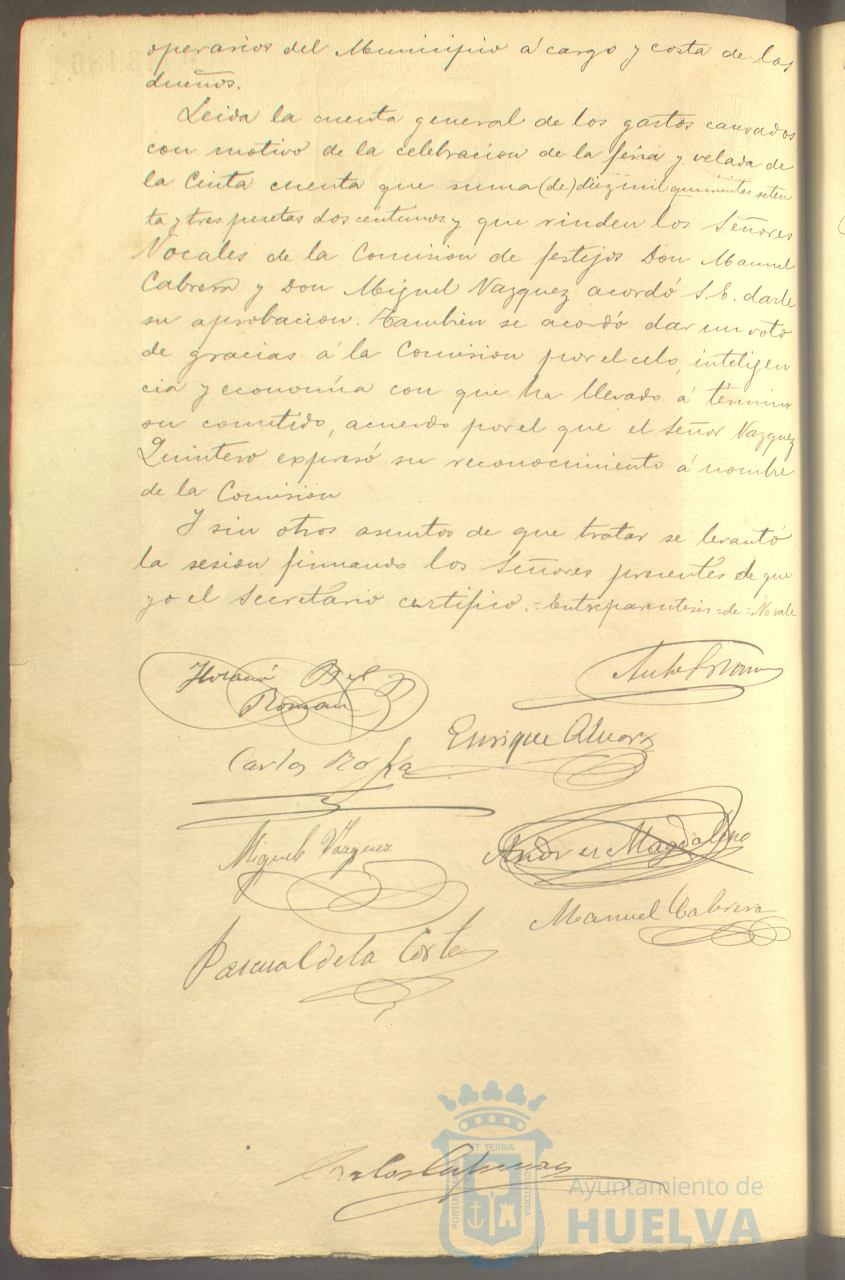 operarios del Municipio á cargo y costa de los
dueños.
Leida la cuenta general de los gastos causados
con motivo de la celebracion de la feria y velada de
la Cinta cuenta que suma (de) diez mil quinientas seten
ta y tres pesetas dos centimos y que rinden los Señores
Vocales de la Comision de festejos Don Manuel
Cabrera y Don Miguel Vazquez acordó S.E. darle
su aprobacion. Tambien se acordó dar un voto
de gracias á la Comision por el celo, inteligen
cia y economía con que ha llevado á término
su cometido, acuerdo por el que el Señor Vazquez
Quintero expresó su reconocimiento á nombre
de la Comision
Y sin otros asuntos de que tratar se levantó
la sesion firmando los Señores presentes de que
yo el Secretario certifico. = Entreparentesis = de = No vale
Román
Enrique
Carlos
Miguel Vázquez
Andres Magdaleno
Manuel Cabrera
Pascual de la Corte
ET TERRÆ
PORTUS
CUSTODIA
Ayuntamiento de
HUELVA